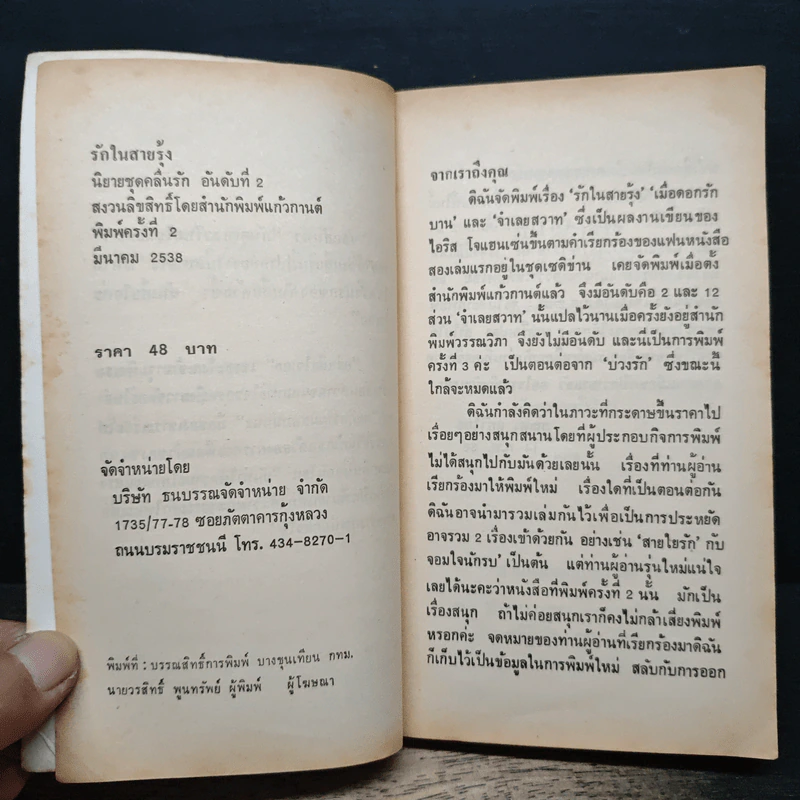 รักในสายรุ้ง
นิยายชุดคลื่นรัก อันดับที่ 2
สงวนลิขสิทธิ์โดยสำนักพิมพ์แก้วกานต์
พิมพ์ครั้งที่ 2
มีนาคม 2538
ราคา 48 บาท
จัดจำหน่ายโดย
บริษัท ธนบรรณจัดจำหน่าย จำกัด
1735/77-78 ซอยภัตตาคารกุ้งหลวง
ถนนบรมราชชนนี โทร. 434-8270-1
พิมพ์ที่ : บรรณสิทธิ์การพิมพ์ บางขุนเทียน กทม.
นายวรสิทธิ์ พูนทรัพย์ ผู้พิมพ์ ผู้โฆษณา
จากเราถึงคุณ
ดิฉันจัดพิมพ์เรื่อง 'รักในสายรุ้ง' 'เมื่อดอกรัก
บาน' และ 'จำเลยสวาท' ซึ่งเป็นผลงานเขียนของ
ไอริส โจแฮนเซ่นขึ้นตามคำเรียกร้องของแฟนหนังสือ
สองเล่มแรกอยู่ในชุดเซดิข่าน เคยจัดพิมพ์เมื่อตั้ง
สำนักพิมพ์แก้วกานต์แล้ว จึงมีอันดับคือ 2 และ 12
ส่วน 'จำเลยสวาท' นั้นแปลไว้นานเมื่อครั้งยังอยู่สำนัก
พิมพ์วรรณวิภา จึงยังไม่มีอันดับ และนี่เป็นการพิมพ์
ครั้งที่ 3 ค่ะ เป็นตอนต่อจาก 'บ่วงรัก' ซึ่งขณะนี้
ใกล้จะหมดแล้ว
ดิฉันกำลังคิดว่าในภาวะที่กระดาษขึ้นราคาไป
เรื่อยๆอย่างสนุกสนานโดยที่ผู้ประกอบกิจการพิมพ์
ไม่ได้สนุกไปกับมันด้วยเลยนั้น เรื่องที่ท่านผู้อ่าน
เรียกร้องมาให้พิมพ์ใหม่ เรื่องใดที่เป็นตอนต่อกัน
ดิฉันอาจนำมารวมเล่มกันไว้เพื่อเป็นการประหยัด
อาจรวม 2 เรื่องเข้าด้วยกัน อย่างเช่น 'สายใยรัก' กับ
จอมใจนักรบ' เป็นต้น แต่ท่านผู้อ่านรุ่นใหม่แน่ใจ
เลยได้นะคะว่าหนังสือที่พิมพ์ครั้งที่ 2 นั้น มักเป็น
เรื่องสนุก ถ้าไม่ค่อยสนุกเราก็คงไม่กล้าเสี่ยงพิมพ์
หรอกค่ะ จดหมายของท่านผู้อ่านที่เรียกร้องมาดิฉัน
ก็เก็บไว้เป็นข้อมูลในการพิมพ์ใหม่ สลับกับการออก